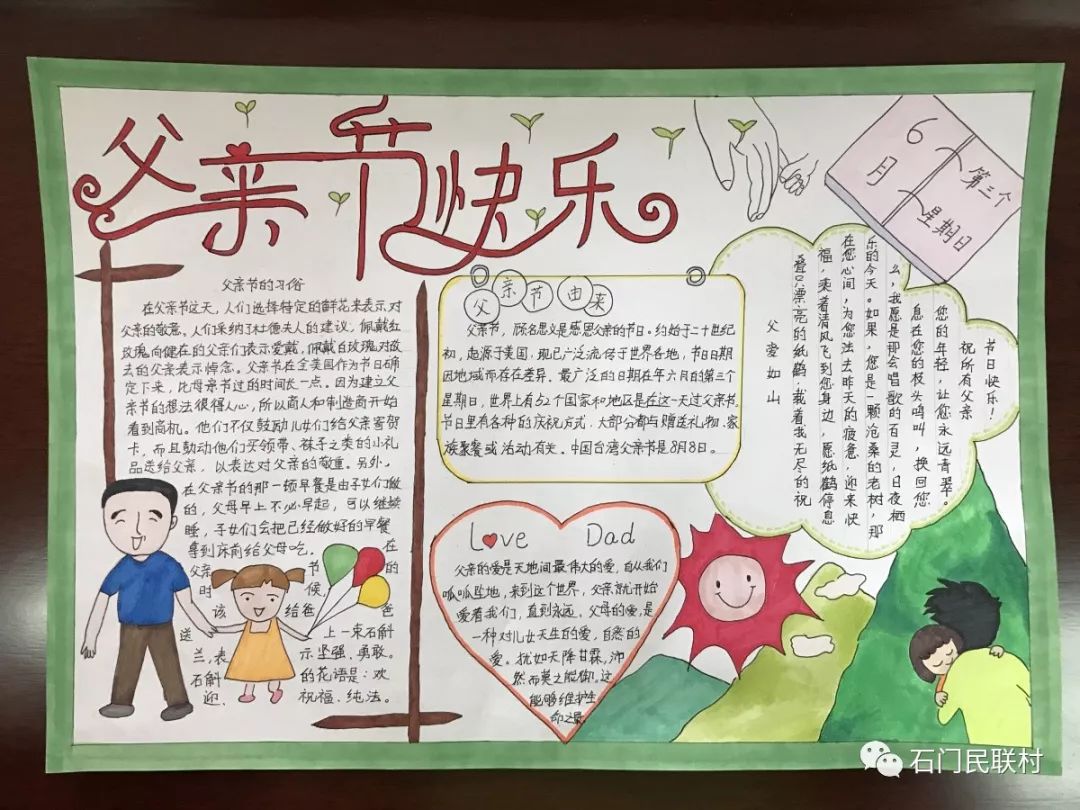 父亲节快乐
6月
第三个
星期日
父亲节的习俗
在父亲节这天，人们选择特定的鲜花来表示对
父亲的敬意。人们采纳了杜德夫人的建议，佩戴红
玫瑰向健在的父亲们表示爱戴，佩戴白玫瑰对故
去的父亲表示悼念。父亲节在全美国作为节日确
定下来，比母亲节过的时间长一点。因为建立父
亲节的想法很得人心，所以商人和制造商开始
看到商机。他们不仅鼓励儿女们给父亲寄贺
卡，而且鼓动他们买领带、袜子之类的小礼
品送给父亲，以表达对父亲的敬重。另外，
在父亲节的那一顿早餐是由子女们做
的，父母早上不必早起，可以继续
睡，子女们会把已经做好的早餐
拿到床前给父母吃，在
父亲节的
时候，
该给爸爸
送上一束石斛
兰，表示坚强、勇敢。
石斛的花语是：欢
迎、祝福、纯法。
父亲节由来
父亲节，顾名思义是感恩父亲的节日。约始于二十世纪
初，起源于美国，现已广泛流传于世界各地，节日日期
因地域而存在差异。最广泛的日期在每年六月的第三个
星期日，世界上有52个国家和地区是在这一天过父亲节。
节日里有各种的庆祝方式，大部分都与赠送礼物、家
族聚餐或活动有关。中国台湾父亲节是8月8日。
Love Dad
父亲的爱是天地间最伟大的爱，自从我们
呱呱坠地，来到这个世界，父亲就开始
爱着我们，直到永远。父母的爱，是
一种对儿女天生的爱，自然的
爱。犹如天降甘霖，沛
然而莫之能御。这
能够维护生
命之最
节日快乐！
祝所有父亲
您的年轻，让您永远青翠。
息在您的枝头鸣叫，换回您
么，我愿是那会唱歌的百灵，日夜栖
乐的今天。如果，您是一颗沧桑的老树，那
在您心间，为您法去昨天的疲惫，迎来快
福，乘着清风飞到您身边，愿纸鹤停息
叠只漂亮的纸鹤，载着我无尽的祝
父爱如山
石门民联村